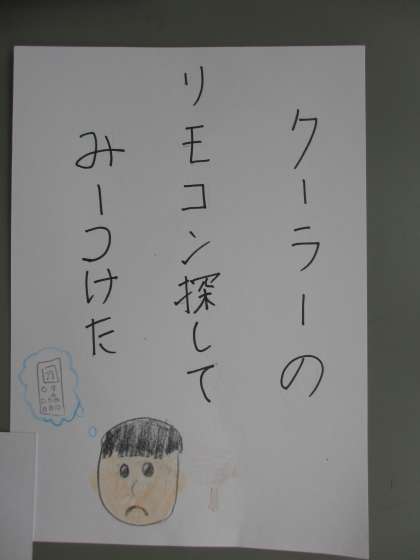 クーラーの
リモコン探して
みーつけた